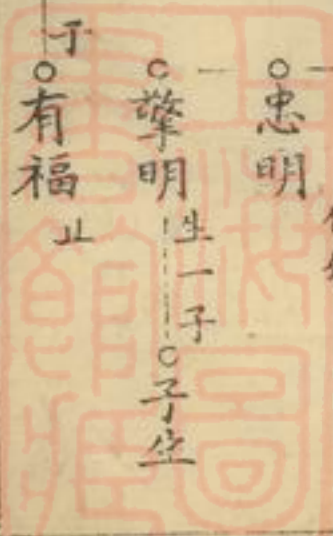 忠明
擎明 生一子 子生
子 有福 止